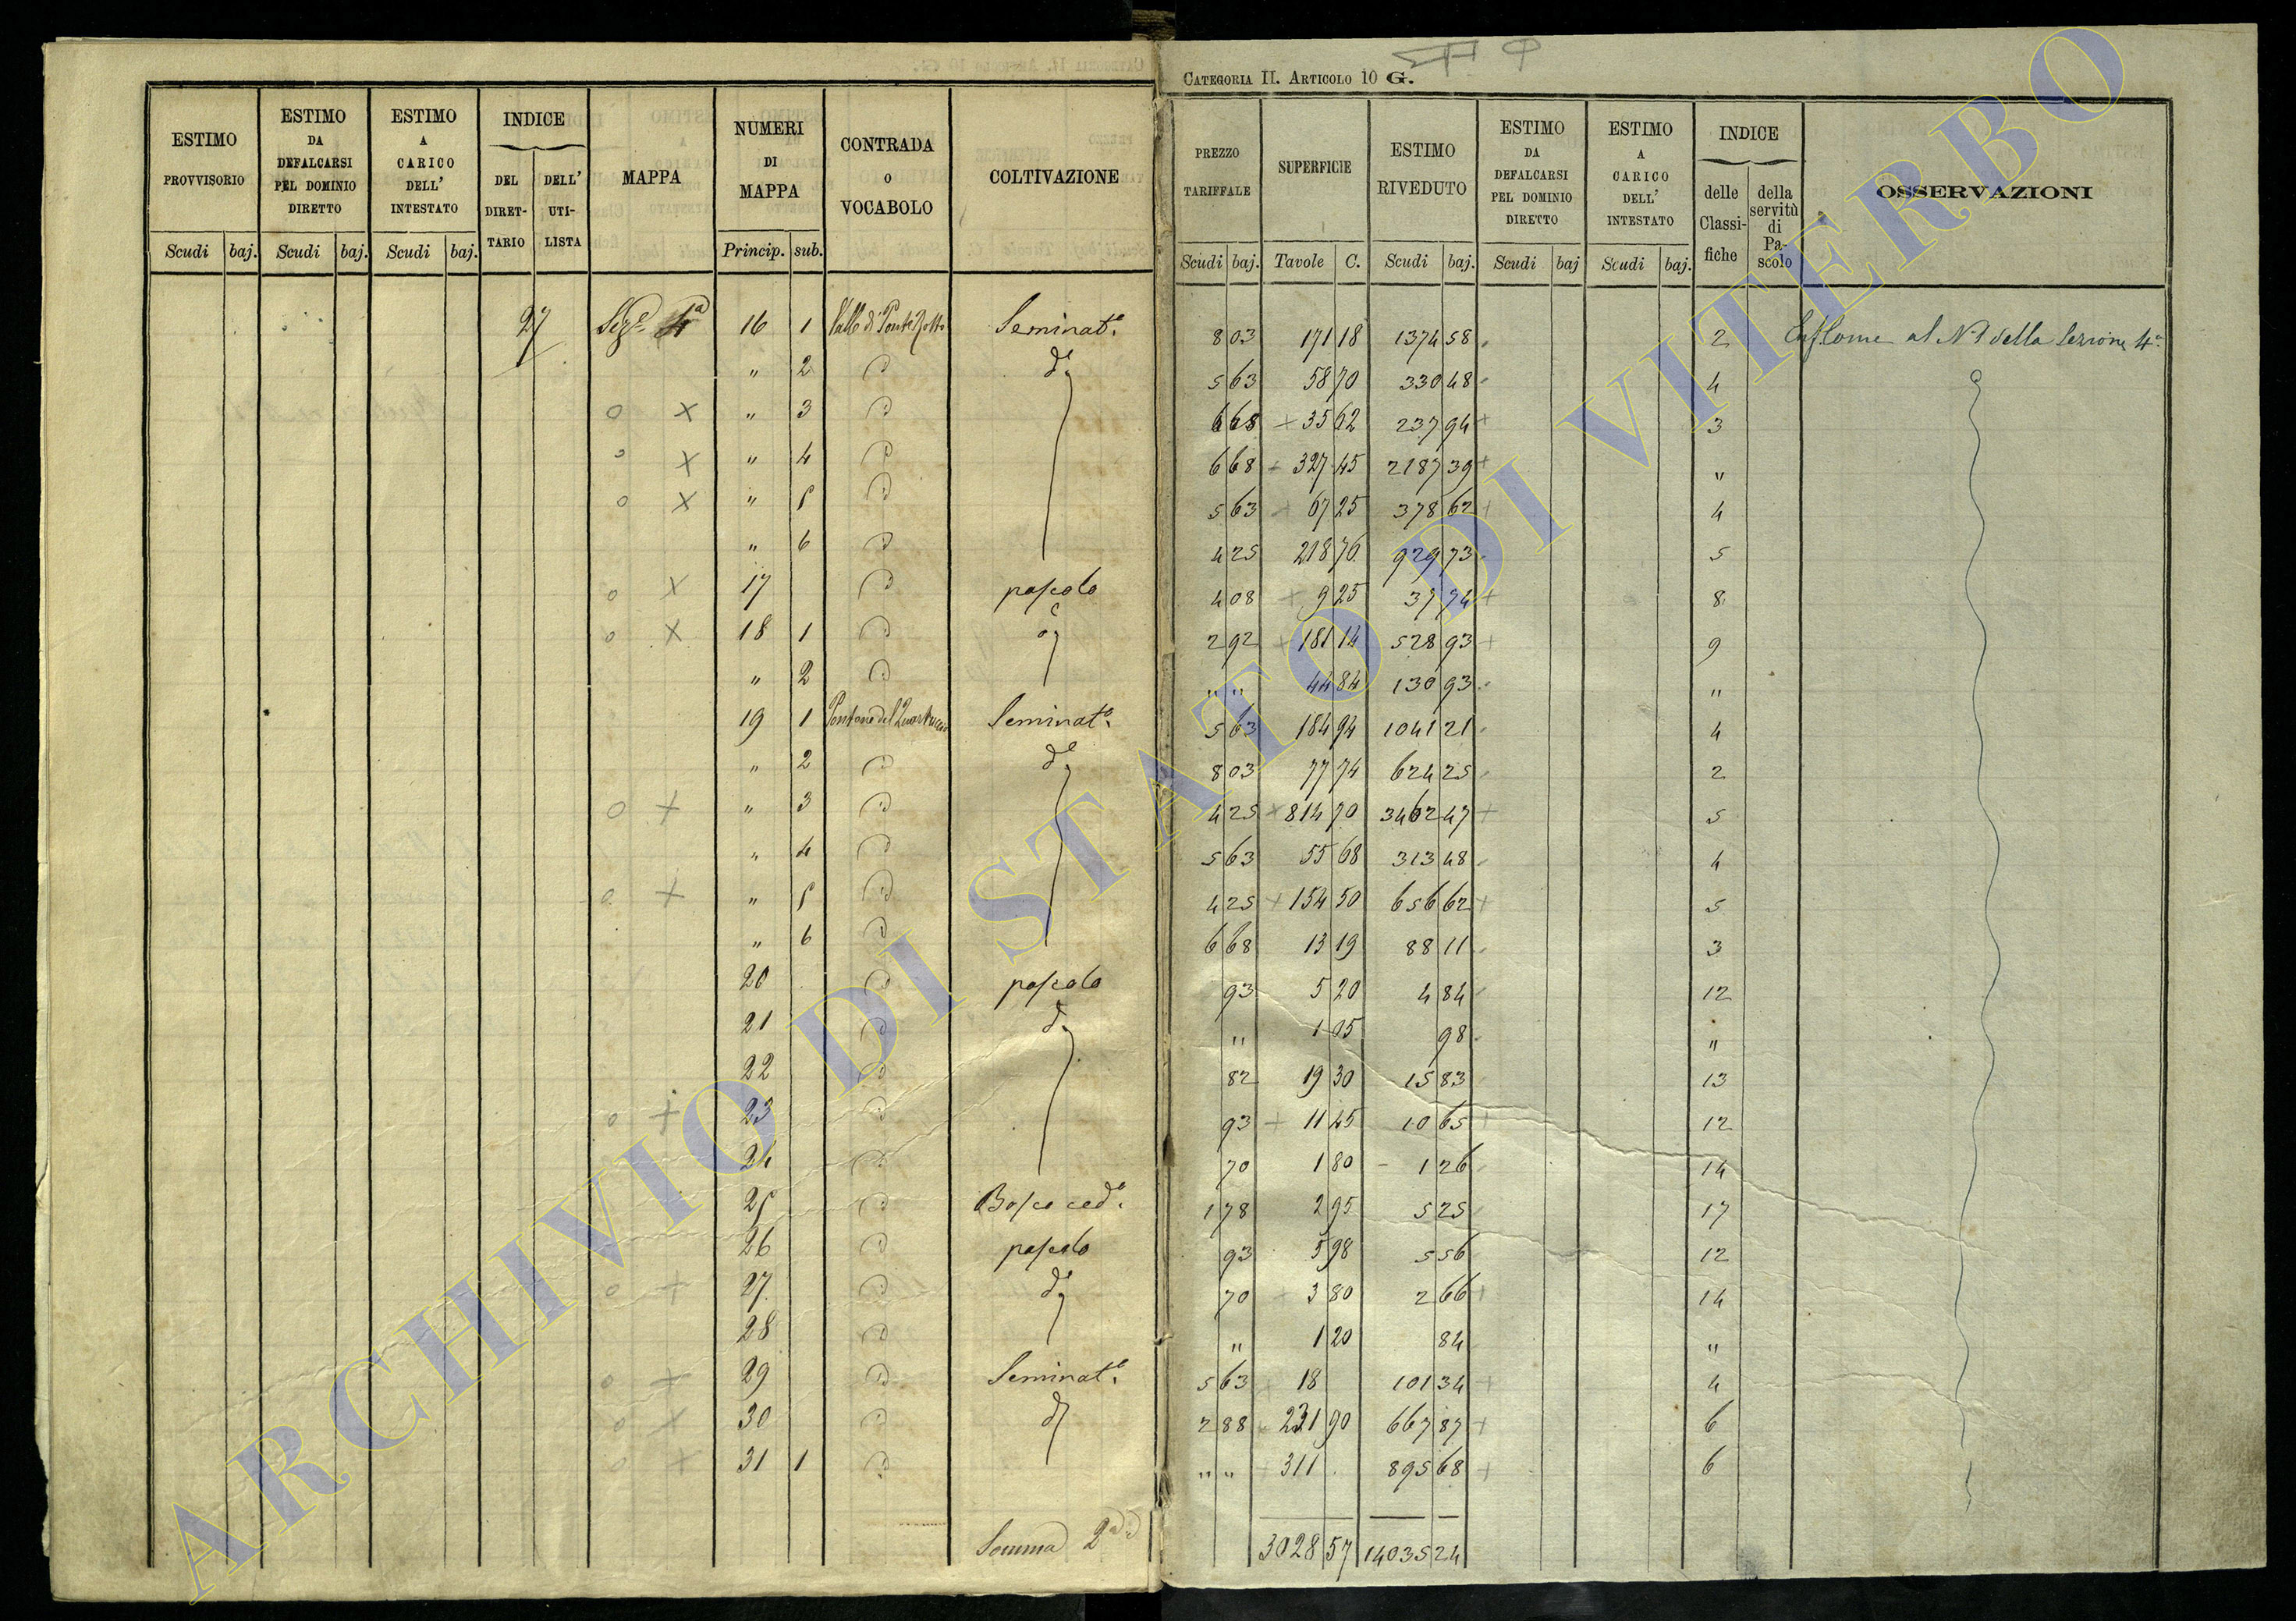 CATEGORIA II. ARTICOLO 10 G.
ESTIMO PROVVISORIO Scudi baj.
ESTIMO DA DEFALCARSI PEL DOMINIO DIRETTO Scudi baj.
ESTIMO A CARICO DELL' INTESTATO Scudi baj.
INDICE DEL DIRET-TARIO DELL' UTI-LISTA
MAPPA
NUMERI DI MAPPA Princip. sub.
CONTRADA O VOCABOLO
COLTIVAZIONE
PREZZO TARIFFALE Scudi baj.
SUPERFICIE Tavole C.
ESTIMO RIVEDUTO Scudi baj.
ESTIMO DA DEFALCARSI PEL DOMINIO DIRETTO Scudi baj
ESTIMO A CARICO DELL' INTESTATO Scudi baj.
INDICE delle Classi-fiche della servitù di Pa-scolo
OSSERVAZIONI
27 Sezᵉ 4ª 16 1 Valle di Ponte Rotto Seminatᵒ. 8 03 171 18 1374 58 2 al N 1 della Sezione 4ª
" 2 dᵒ 5 63 58 70 330 48 4
o × " 3 6 68 + 35 62 237 94 + 3
o × " 4 6 68 327 45 2187 39 + "
o × " 5 5 63 67 25 378 62 + 4
" 6 4 25 218 76 929 73 5
o × 17 pascolo 4 08 + 9 25 37 74 + 8
o × 18 1 dᵒ 2 92 + 181 14 528 93 + 9
" 2 " " 44 84 130 93 "
19 1 Pontone del Seminatᵒ. 5 63 184 94 1041 21 4
" 2 dᵒ 8 03 77 74 624 25 2
o + " 3 4 25 + 814 70 3462 47 + 5
" 4 5 63 55 68 313 48 4
o + " 5 4 25 + 154 50 656 62 + 5
" 6 6 68 13 19 88 11 3
20 pascolo 93 5 20 4 84 12
21 dᵒ " 1 05 98 "
22 82 19 30 15 83 13
o + 23 93 + 11 45 10 65 + 12
24 70 1 80 1 26 14
25 Bosco cedᵒ. 1 78 2 95 5 25 17
26 pascolo 93 5 98 5 56 12
o + 27 dᵒ 70 3 80 2 66 + 14
28 " 1 20 84 "
o + 29 Seminatᵒ. 5 63 18 101 34 + 4
o + 30 dᵒ 2 88 231 90 667 87 + 6
o + 31 1 " " 311 895 68 + 6
Somma 2ª 3028 57 14035 24
ARCHIVIO DI STATO DI VITERBO